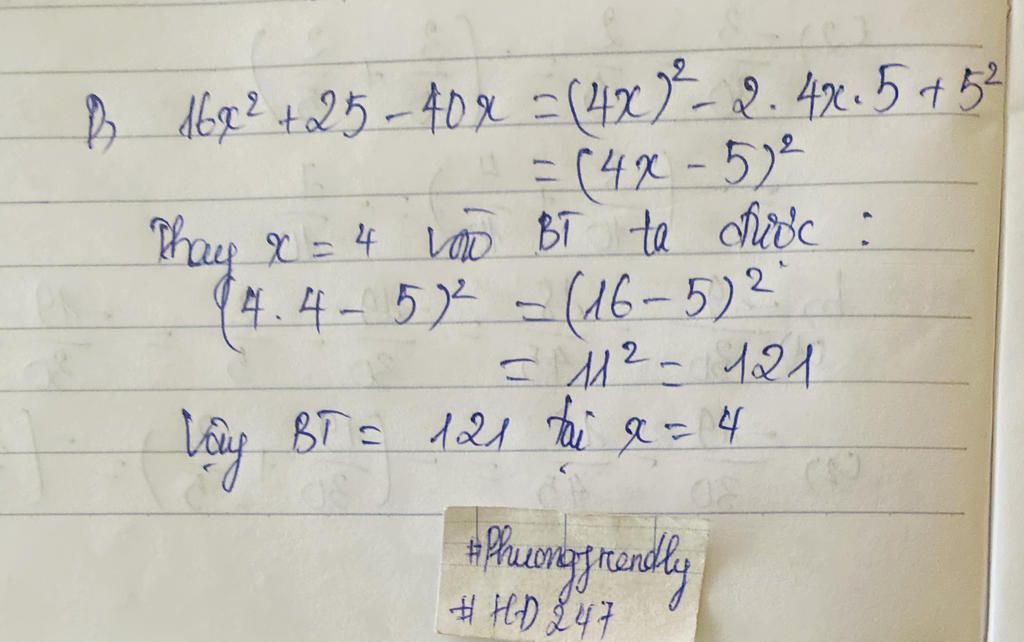 b, 16x² + 25 - 40x = (4x)² - 2. 4x. 5 + 5²
= (4x - 5)²
Thay x = 4 vào BT ta được :
(4. 4 - 5)² = (16 - 5)²
= 11² = 121
Vậy BT = 121 tại x = 4
#Phuongfrendly
# HD 247